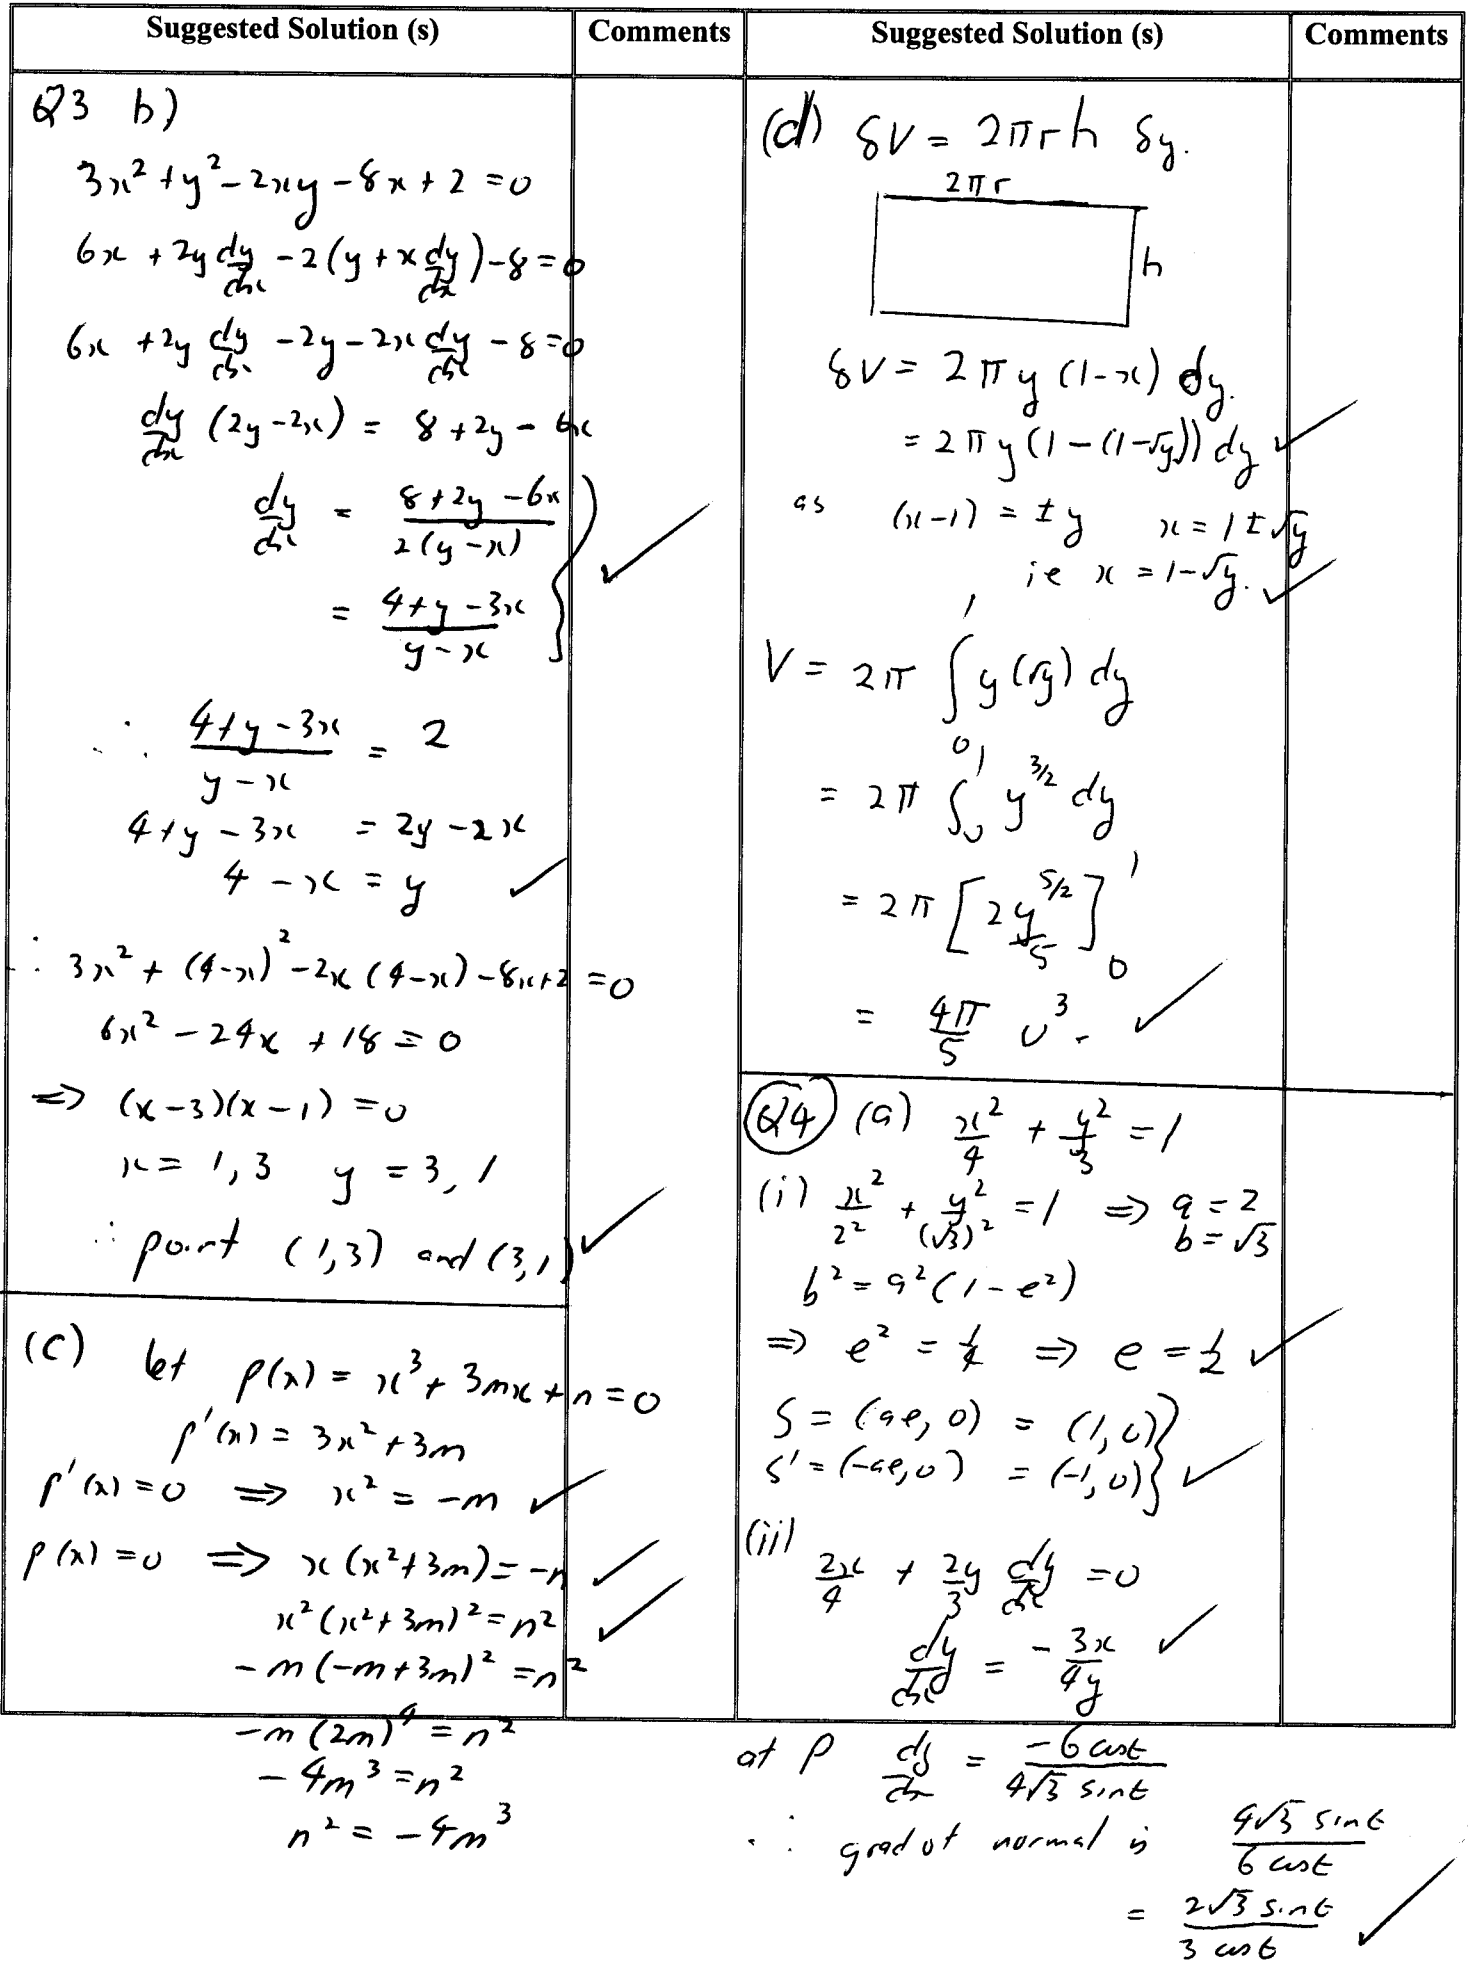 Suggested Solution (s) Comments
Q3 b)
3x² + y² - 2xy - 8x + 2 = 0
6x + 2y dy/dx - 2(y + x dy/dx) - 8 = 0
6x + 2y dy/dx - 2y - 2x dy/dx - 8 = 0
dy/dx (2y - 2x) = 8 + 2y - 6x
dy/dx = (8 + 2y - 6x)/(2(y - x)) ✓
= (4 + y - 3x)/(y - x)
∴ (4 + y - 3x)/(y - x) = 2
4 + y - 3x = 2y - 2x
4 - x = y ✓
∴ 3x² + (4-x)² - 2x(4-x) - 8x + 2 = 0
6x² - 24x + 18 = 0
⇒ (x-3)(x-1) = 0
x = 1, 3 y = 3, 1
∴ point (1,3) and (3,1) ✓
(c) let p(x) = x³ + 3mx + n = 0
p'(x) = 3x² + 3m
p'(x) = 0 ⇒ x² = -m ✓
p(x) = 0 ⇒ x(x² + 3m) = -n ✓
x²(x² + 3m)² = n² ✓
-m(-m + 3m)² = n²
-m(2m)⁴ = n²
-4m³ = n²
n² = -4m³
Suggested Solution (s) Comments
(d) δV = 2πrh δy.
2πr
h
δV = 2πy(1-x) dy.
= 2πy(1-(1-√y)) dy ✓
as (x-1) = ±y x = 1 ± √y
ie x = 1-√y. ✓
V = 2π ∫₀¹ y(√y) dy
= 2π ∫₀¹ y^(3/2) dy
= 2π [2y^(5/2)/5]₀¹
= 4π/5 u³. ✓
Q4 (a) x²/4 + y²/3 = 1
(i) x²/2² + y²/(√3)² = 1 ⇒ a = 2
b = √3
b² = a²(1-e²)
⇒ e² = 1/4 ⇒ e = 1/2 ✓
S = (ae, 0) = (1, 0)
S' = (-ae, 0) = (-1, 0) ✓
(ii)
2x/4 + 2y/3 dy/dx = 0
dy/dx = -3x/4y ✓
at P dy/dx = -6 cost/(4√3 sint)
∴ grad of normal is 4√3 sint/(6 cost)
= 2√3 sint/(3 cost) ✓